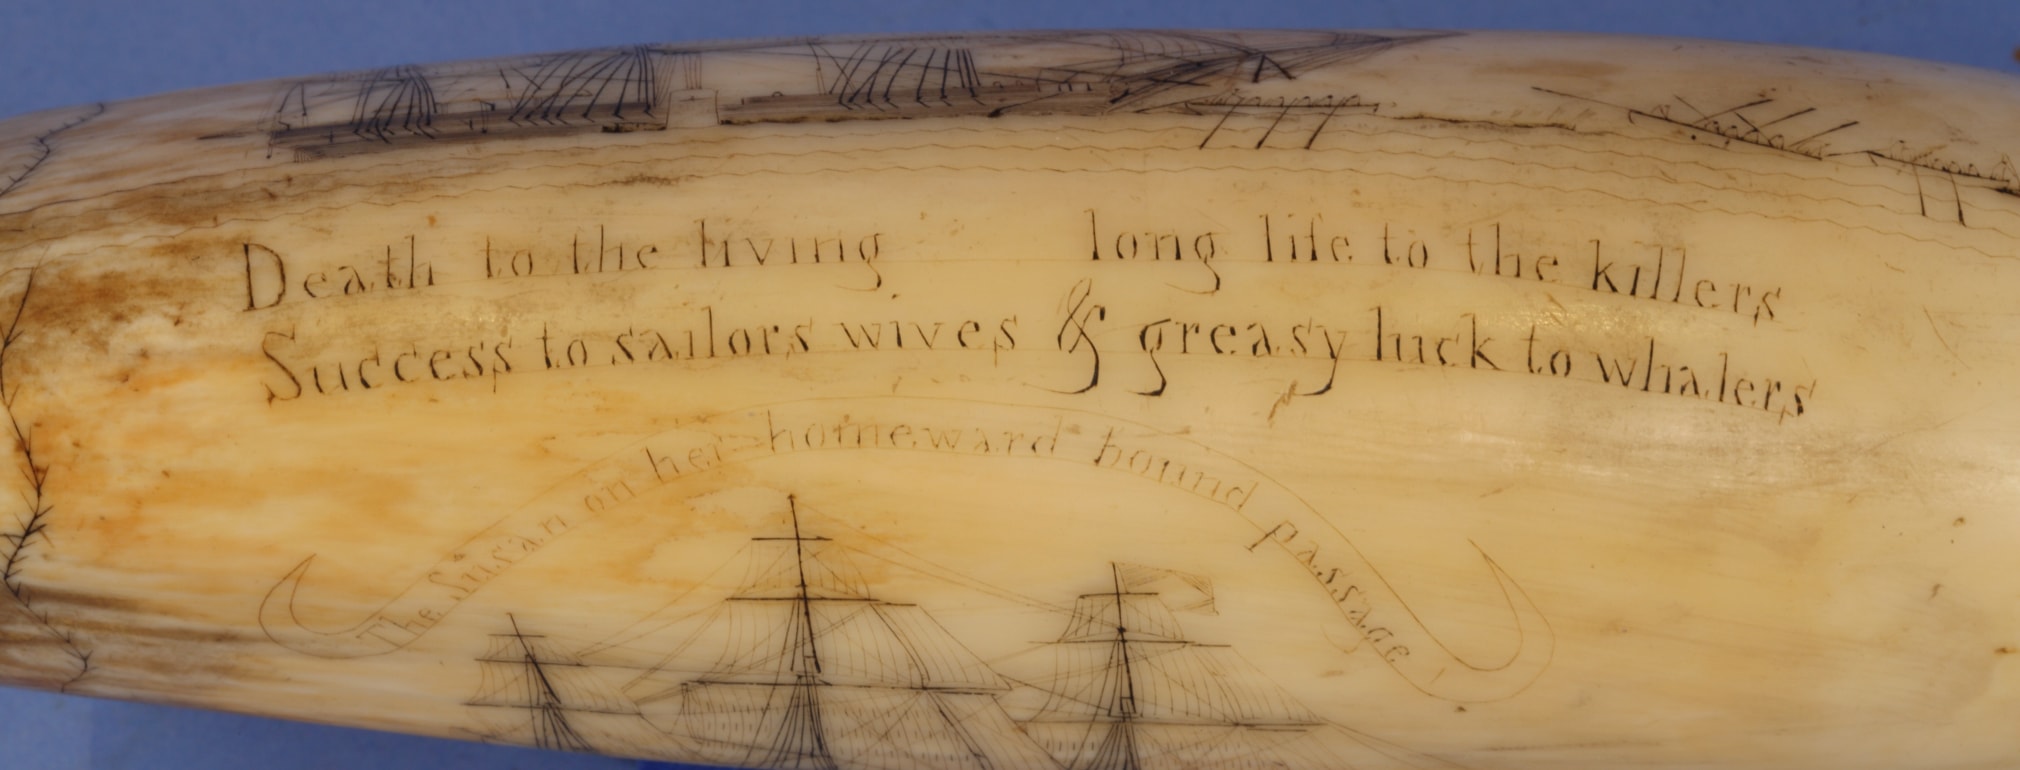 Death to the living long life to the killers
Success to sailors wives & greasy luck to whalers
The Susan on her homeward bound passage